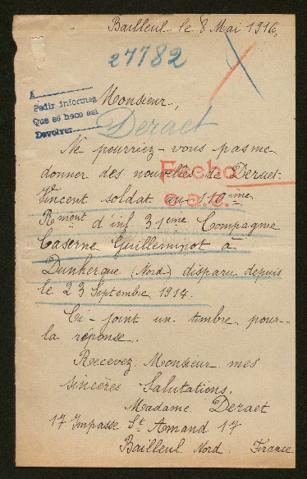 Bailleul le 8 Mai 1916,
27782
A
Pedir informes
Que se hace así
Devolver
Monsieur,
Deraet
Ne pourriez-vous pas me
donner des nouvelles de Deraet
Fecho
Vincent soldat au 110ième
Rément d'inf 31ième Compagnie
Caserne Guilleminot à
Dunkerque (Nord) disparu depuis
le 23 Septembre 1914.
Ci-joint un timbre pour
la réponse.
Recevez Monsieur mes
sincères Salutations.
Madame Deraet
17 Impasse St Amand 17
Bailleul Nord France